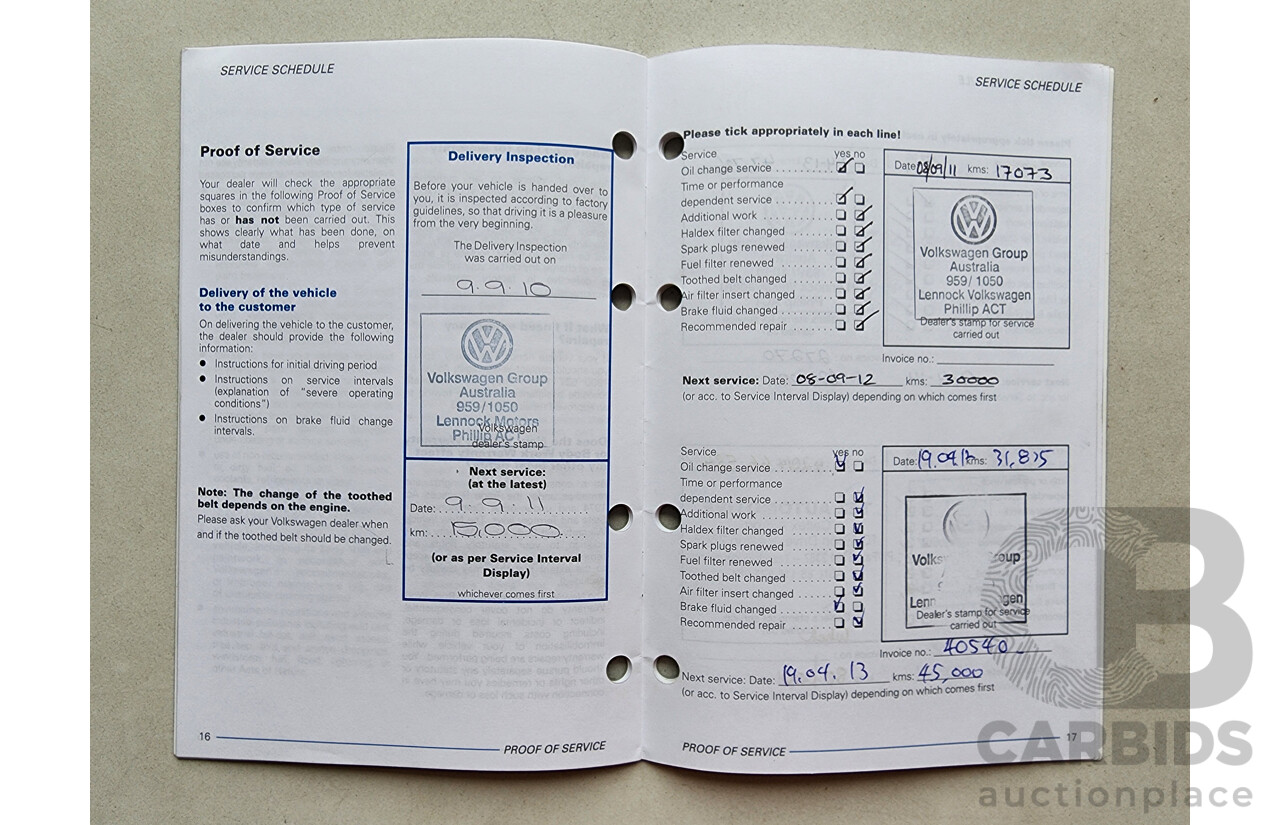 SERVICE SCHEDULE
Proof of Service
Your dealer will check the appropriate
squares in the following Proof of Service
boxes to confirm which type of service
has or has not been carried out. This
shows clearly what has been done, on
what date and helps prevent
misunderstandings.
Delivery of the vehicle
to the customer
On delivering the vehicle to the customer,
the dealer should provide the following
information:
● Instructions for initial driving period
● Instructions on service intervals
(explanation of "severe operating
conditions")
● Instructions on brake fluid change
intervals.
Note: The change of the toothed
belt depends on the engine.
Please ask your Volkswagen dealer when
and if the toothed belt should be changed.
Delivery Inspection
Before your vehicle is handed over to
you, it is inspected according to factory
guidelines, so that driving it is a pleasure
from the very beginning.
The Delivery Inspection
was carried out on
9.9.10
Volkswagen Group
Australia
959/1050
Lennock Motors
Phillip ACT
Volkswagen
dealer's stamp
Next service:
(at the latest)
Date: 9.9.11
km: 15,000
(or as per Service Interval
Display)
whichever comes first
16
PROOF OF SERVICE
SERVICE SCHEDULE
Please tick appropriately in each line!
Service yes no
Oil change service
Time or performance
dependent service
Additional work
Haldex filter changed
Spark plugs renewed
Fuel filter renewed
Toothed belt changed
Air filter insert changed
Brake fluid changed
Recommended repair
Date: 08/09/11 kms: 17073
Volkswagen Group
Australia
959/1050
Lennock Volkswagen
Phillip ACT
Dealer's stamp for service
carried out
Invoice no.:
Next service: Date: 08-09-12 kms: 30000
(or acc. to Service Interval Display) depending on which comes first
Service yes no
Oil change service
Time or performance
dependent service
Additional work
Haldex filter changed
Spark plugs renewed
Fuel filter renewed
Toothed belt changed
Air filter insert changed
Brake fluid changed
Recommended repair
Date: kms: 31,835
Dealer's stamp for service
carried out
Invoice no.: 40540
Next service: Date: 19.04.13 kms: 45,000
(or acc. to Service Interval Display) depending on which comes first
PROOF OF SERVICE
17
CARBIDS
auctionplace